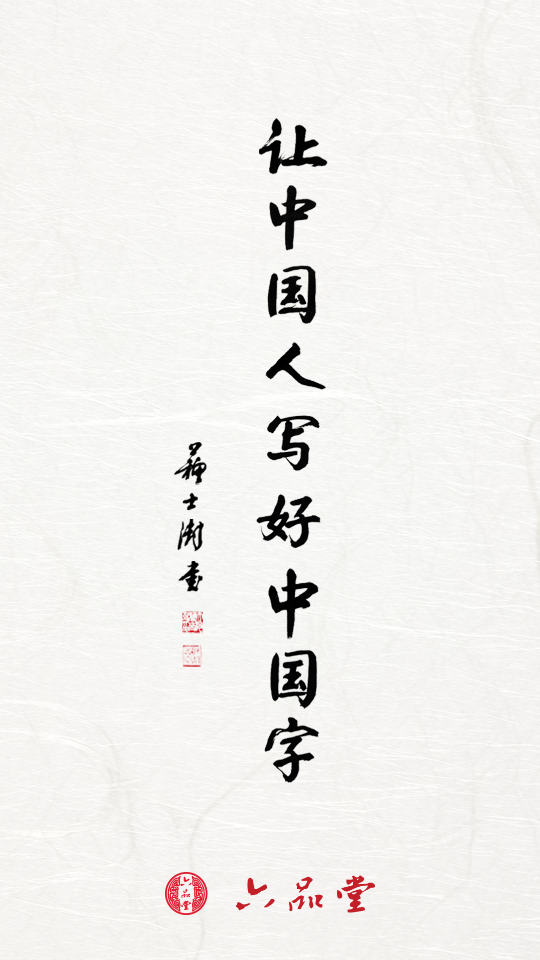 让中国人写好中国字
蘇士澍书
六品堂
六品堂